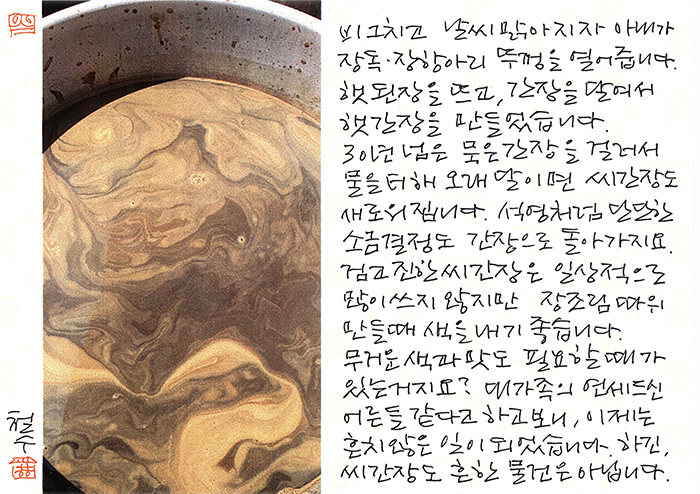 비그치고 날씨 맑아지자 아내가
장독·장항아리 뚜껑을 열어줍니다.
햇된장을 뜨고, 간장을 달여서
햇간장을 만들었습니다.
30년 넘은 묵은간장을 걸러서
물을 더해 오래 달이면 씨간장도
새로워집니다. 석영처럼 단단한
소금결정도 간장으로 돌아가지요.
검고 진한 씨간장은 일상적으로
많이 쓰지 않지만 장조림 따위
만들때 색을 내기 좋습니다.
무거운 색과 맛도 필요할 때가
있는거지요? 대가족의 연세드신
어른들 같다고 하고보니, 이제는
흔치않은 일이 되었습니다. 하긴,
씨간장도 흔한 물건은 아닙니다.
철수